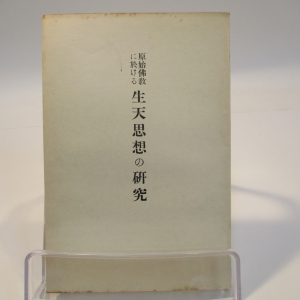 原始佛教
に於ける
生天思想の研究